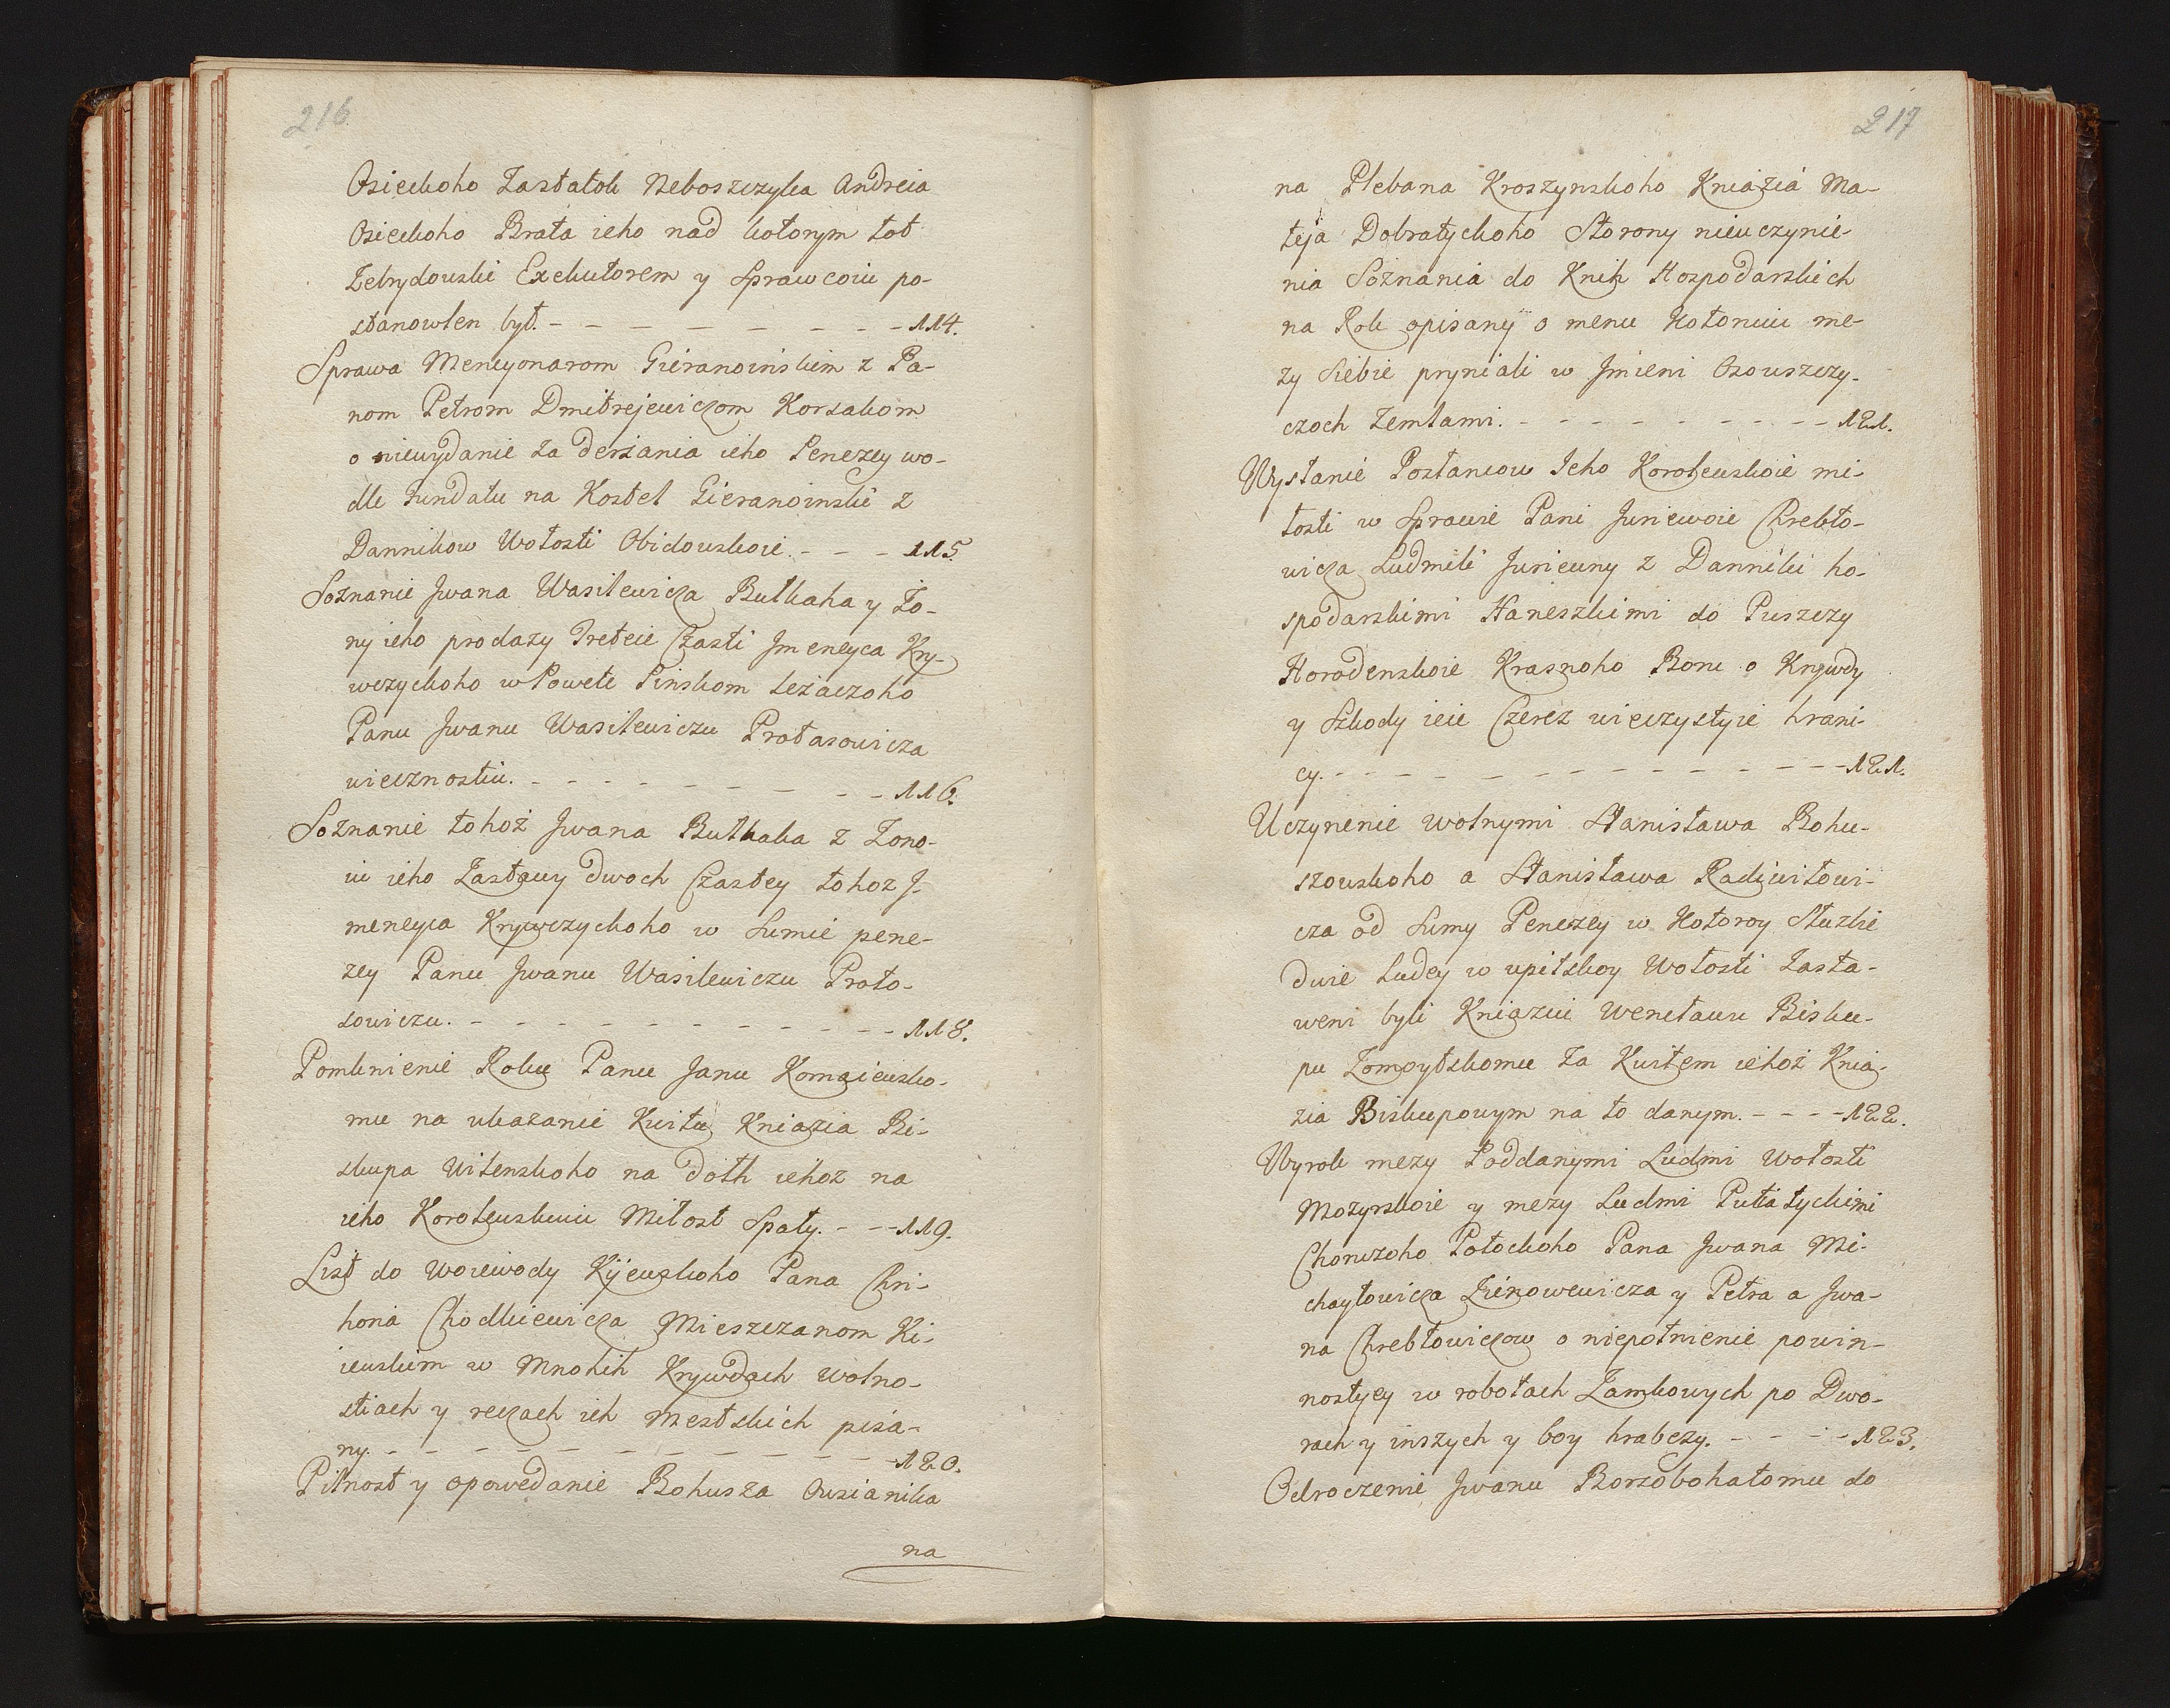 216
Osieckoho Zastatok Neboszczyka Andreia
Osieckoho Brata ieho nad kotorym tot
Zebrydowski Exekutorem y Sprawcoiu po-
stanowlen był. - - - - - - - - - 114.
Sprawa Mencyonarom Gieranoinskim z Pa-
nom Petrom Dmitrejewiczom Korsakom
o niewydanie za derżania ieho Penezey wo-
dle Fundatu na Kostel Gieranoinski z
Dannikow Wołosti Obidowskoie. - - - 115.
Soznanie Jwana Wasilewicza Butkaha y Żo-
ny ieho prodazy Treteie Czasti Jmeneyca Kry-
wczyckoho w Powete Pinskom leżaczoho
Panu Jwanu Wasilewiczu Protasowicza
wiecznostiu. - - - - - - - - - 116.
Soznanie tohoż Jwana Butkaha z Zono-
iu ieho Zastawy dwoch Czastey tohoz J-
meneyca Krywczyckoho w Sumie pene-
zey Panu Jwanu Wasilewiczu Proto-
sowiczu. - - - - - - - - - - - 118.
Pomknienie Roku Panu Janu Komaiewsko-
mu na ukazanie Kwitu Kniazia Bi-
skupa Wilenskoho na dołh iehoż na
ieho Korolewskuiu Miłost Spały. - - - 119.
List do Woiewody Kijewskoho Pana Chri-
horia Chodkiewicza Mieszczanom Ki-
iewskim w Mnohih Krywdach Wolno-
stiach y reczach ich Mestskich pisa-
ny. - - - - - - - - - - - - 120.
Pilnost y opowedanie Bohusza Owsianika
na
217
na Plebana Kroszynskoho Kniazia Ma-
teja Dobratyckoho Storony nieuczynie-
nia Soznania do Knih Hospodarskich
na Rok opisany o menu Kotoruiu me-
zy Siebie pryniali w Jmieni Osouszczy-
czoch Zemlami. - - - - - - - - - 121.
Wysłanie Posłancow Jeho Korolewskoie mi-
łosti w Sprawie Pani Juriewoie Chrebto-
wicza Ludmili Juriewny z Danniki ho-
spodarskimi Haneszkimi do Puszczy
Horodenskoie Krasnoho Boru o Krywdy
y Szkody ieie Czerez wieczystyie hrani-
cy. - - - - - - - - - - - - 121.
Uczynenie wolnymi Stanisława Bohu-
szowskoho a Stanisława Radiwiłowi-
cza od Sumy Penezey w Kotoroy Służki
dwie Ludey w upitskoy Wołosti Zasta-
weni byli Kniaziu Wenclawu Bisku-
pu Żomoytskomu za Kwitem iehoż Knia-
zia Biskupowym na to danym. - - - - 122.
Wyrok mezy Poddanymi Ludmi Wołosti
Mozyrskoie y mezy Ludmi Putiatyckimi
Chorużoho Połockoho Pana Jwana Mi-
chayłowicza Zienowewicza y Petra a Jwa-
na Chrebtowiczow o niepołnienie powin-
nostyey w robotach Zamkowych po Dwo-
rach y inszych y boy hrabezy. - - - - 123.
Odroczenie Jwanu Borzobohatomu do